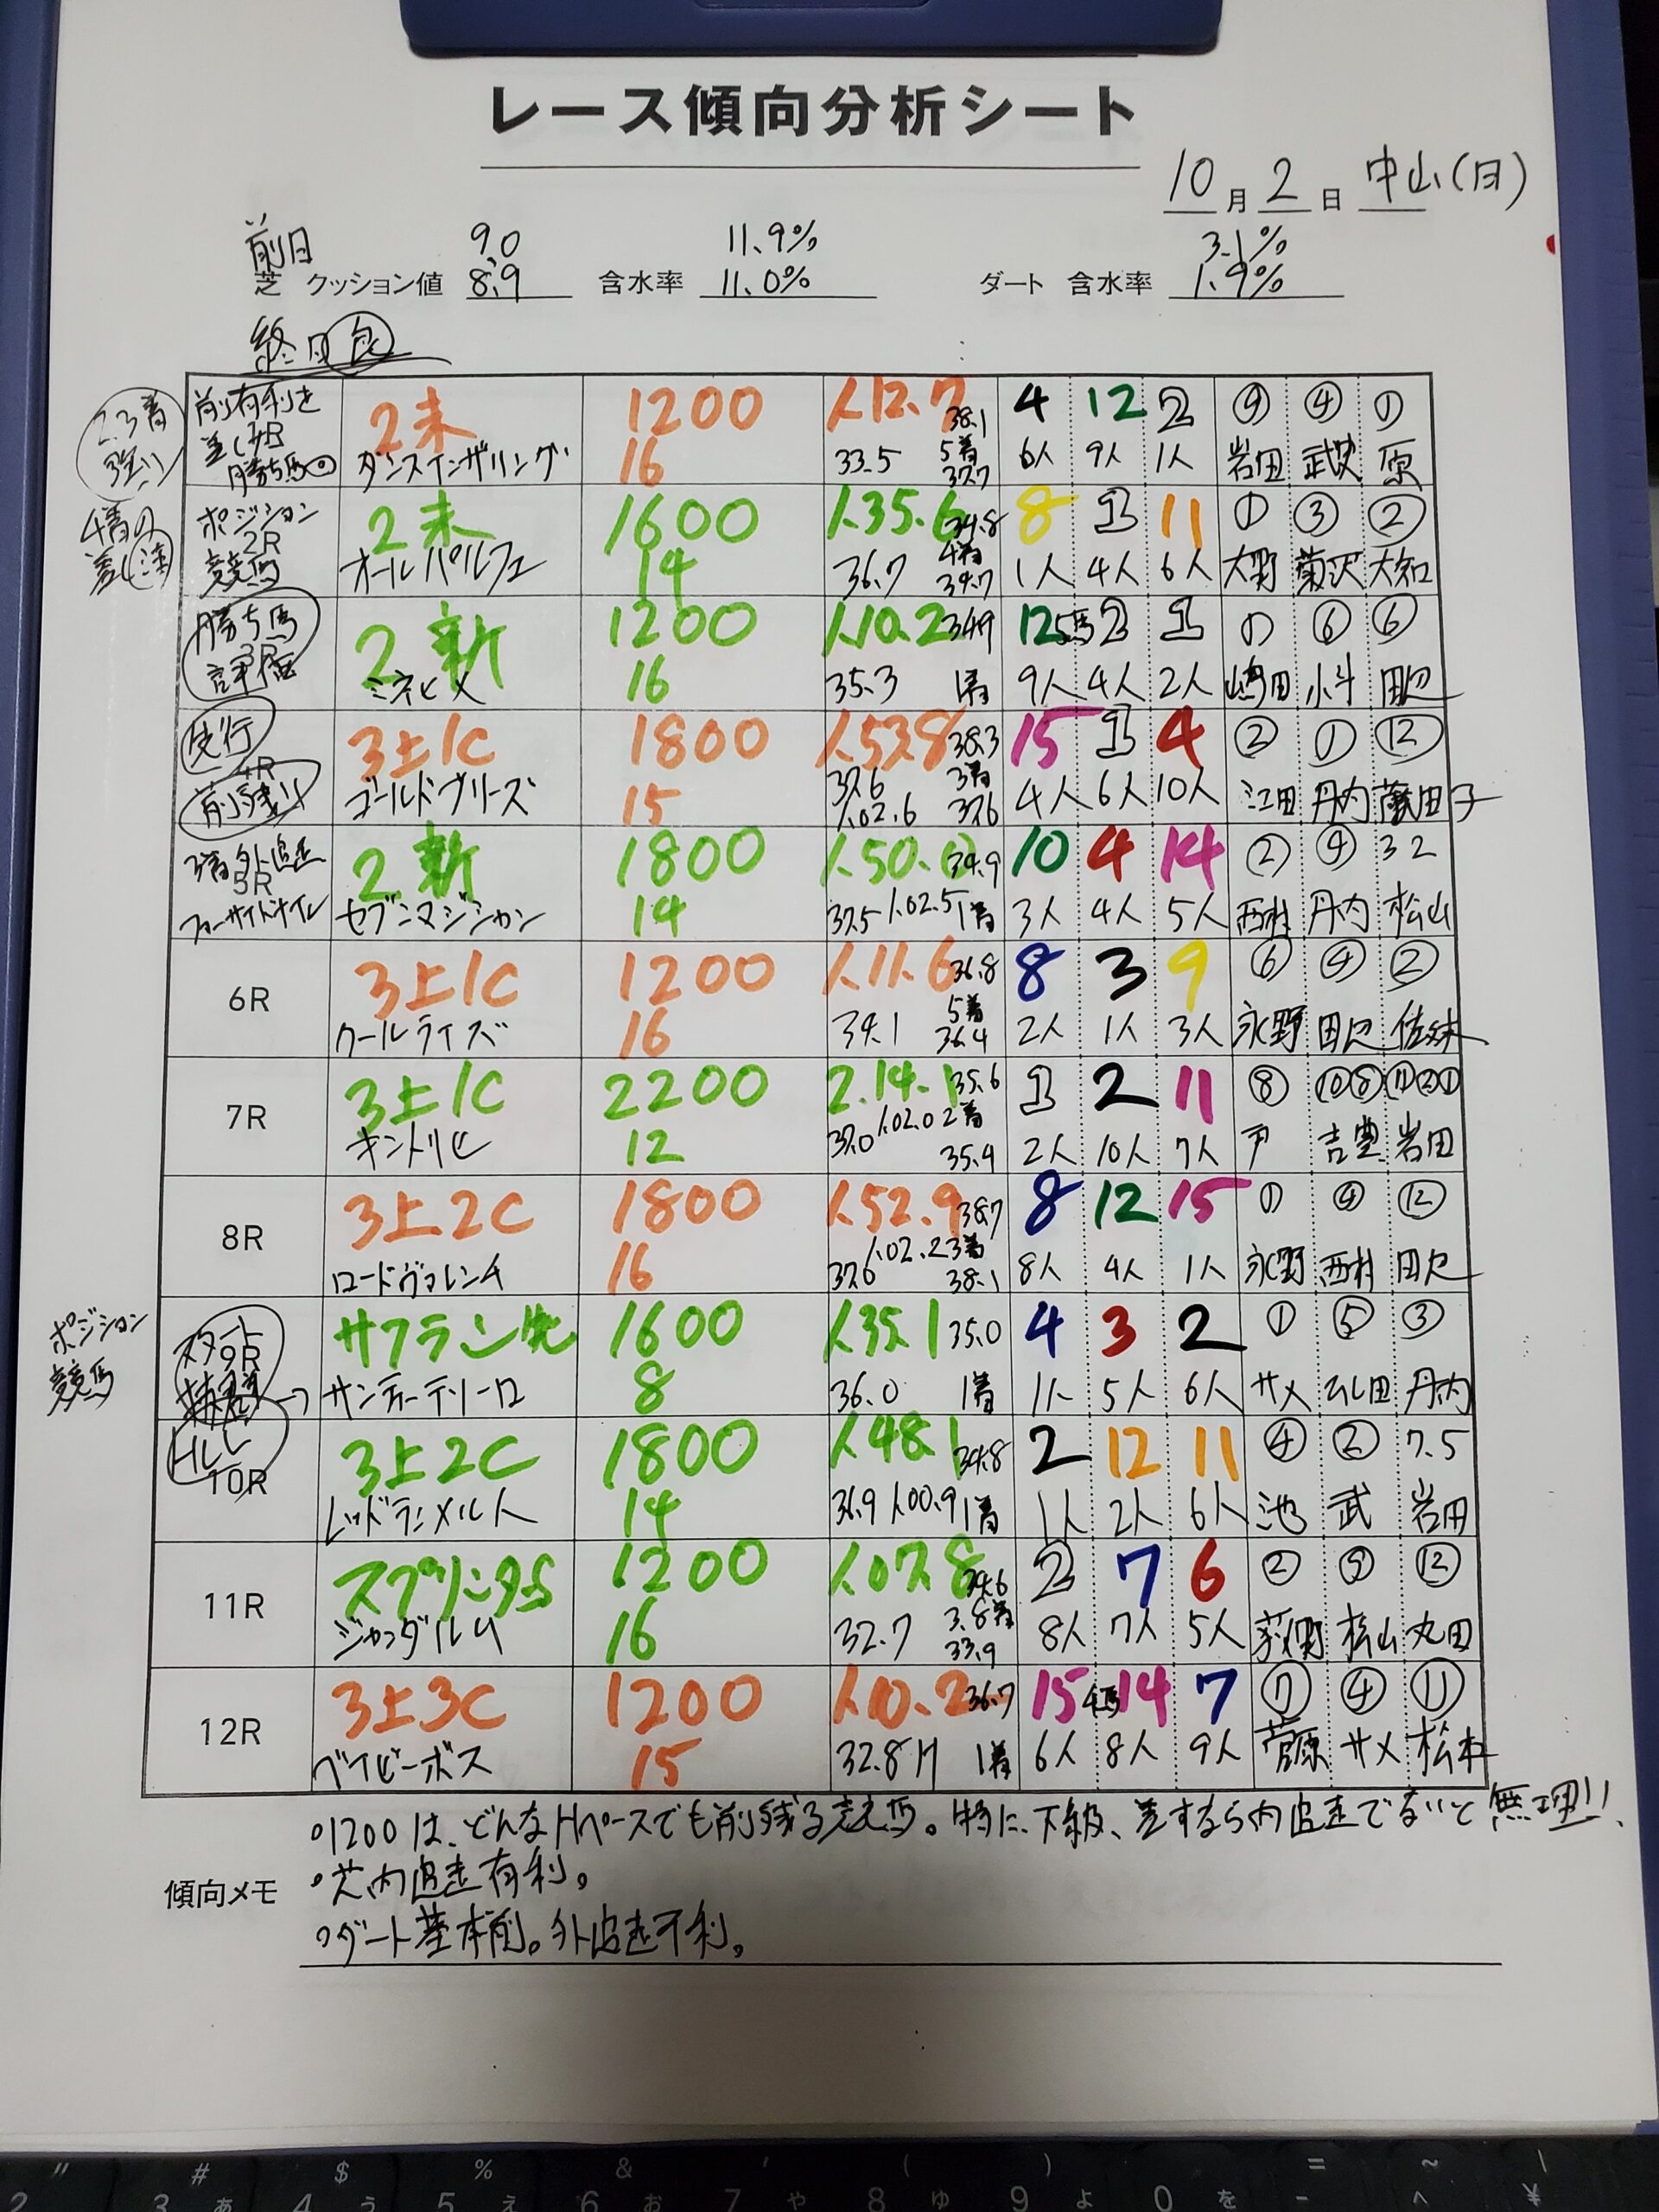 レース傾向分析シート
10月2日 中山(日)
前日 9.0 11.9% 3.1%
芝 クッション値 8.9 含水率 11.0% ダート 含水率 1.9%
終日良
2.3着 強い
前有利を差し 1R 勝ち馬◎ 2未 1200 1.12.7 38.1 4 12 2 ⑨ ④ ①
ダンスインザリング 16 33.5 5着 37.7 6人 9人 1人 岩田 武史 原
4着の差し
ポジション 2R 競馬 2未 1600 1.35.6 34.8 8 1 11 ① ③ ②
オールパルフェ 14 36.7 4着 34.7 1人 4人 6人 大野 菊沢 大知
勝ち馬 3R 評価 2新 1200 1.10.2 34.9 12 5馬 2 1 ① ⑥ ⑥
ミネヒメ 16 35.3 1着 9人 4人 2人 嶋田 小斗 田辺
先行 4R 前残り 3上1C 1800 1.53.8 38.3 15 1 4 ② ① ⑫
ゴールドブリーズ 15 37.6 3着 1.02.6 37.6 4人 6人 10人 江田 丹内 藤田子
3着外追走 5R 2新 1800 1.50.0 34.9 10 4 14 ② ④ 3 2
セブンマジシャン 14 37.5 1.02.5 1着 3人 4人 5人 西村 丹内 松山
6R 3上1C 1200 1.11.6 36.8 8 3 9 ⑥ ④ ②
クールライズ 16 34.1 5着 36.4 2人 1人 3人 永野 田辺
7R 3上1C 2200 2.14.1 35.6 1 2 11 ⑧ ⑩⑧ ⑪②①
キントリヒ 12 37.0 1.02.0 2着 35.4 2人 10人 7人 吉豊 岩田
8R 3上2C 1800 1.52.9 38.7 8 12 15 ① ④ ⑫
ロードヴァレンチ 16 37.6 1.02.2 3着 38.1 8人 4人 1人 永野 西村 田辺
ポジション競馬
スタート 9R サフラン 1600 1.35.1 35.0 4 3 2 ① ⑤ ③
サンティーテソーロ 8 36.0 1着 1人 5人 6人 サメ 丹内
10R 3上2C 1800 1.48.1 34.8 2 12 11 ④ ② 7.5
レッドランメルト 14 36.9 1.00.9 1着 1人 2人 6人 池 武 岩田
11R スプリンターS 1200 1.07.8 34.6 2 7 6 ② ⑨ ⑫
ジャンダルム 16 32.7 3.8着 33.9 8人 7人 5人 荻野 松山 丸田
12R 3上3C 1200 1.10.2 36.7 15 4馬 14 7 ① ④ ⑪
ベイビーボス 15 32.8 H 1着 6人 8人 9人 菅原 サメ 松本
傾向メモ
○1200は、どんなHペースでも前残る競馬。特に、下級、差すなら内追走でないと無理!!
○芝内追走有利。
○ダート基本前。外追走不利。